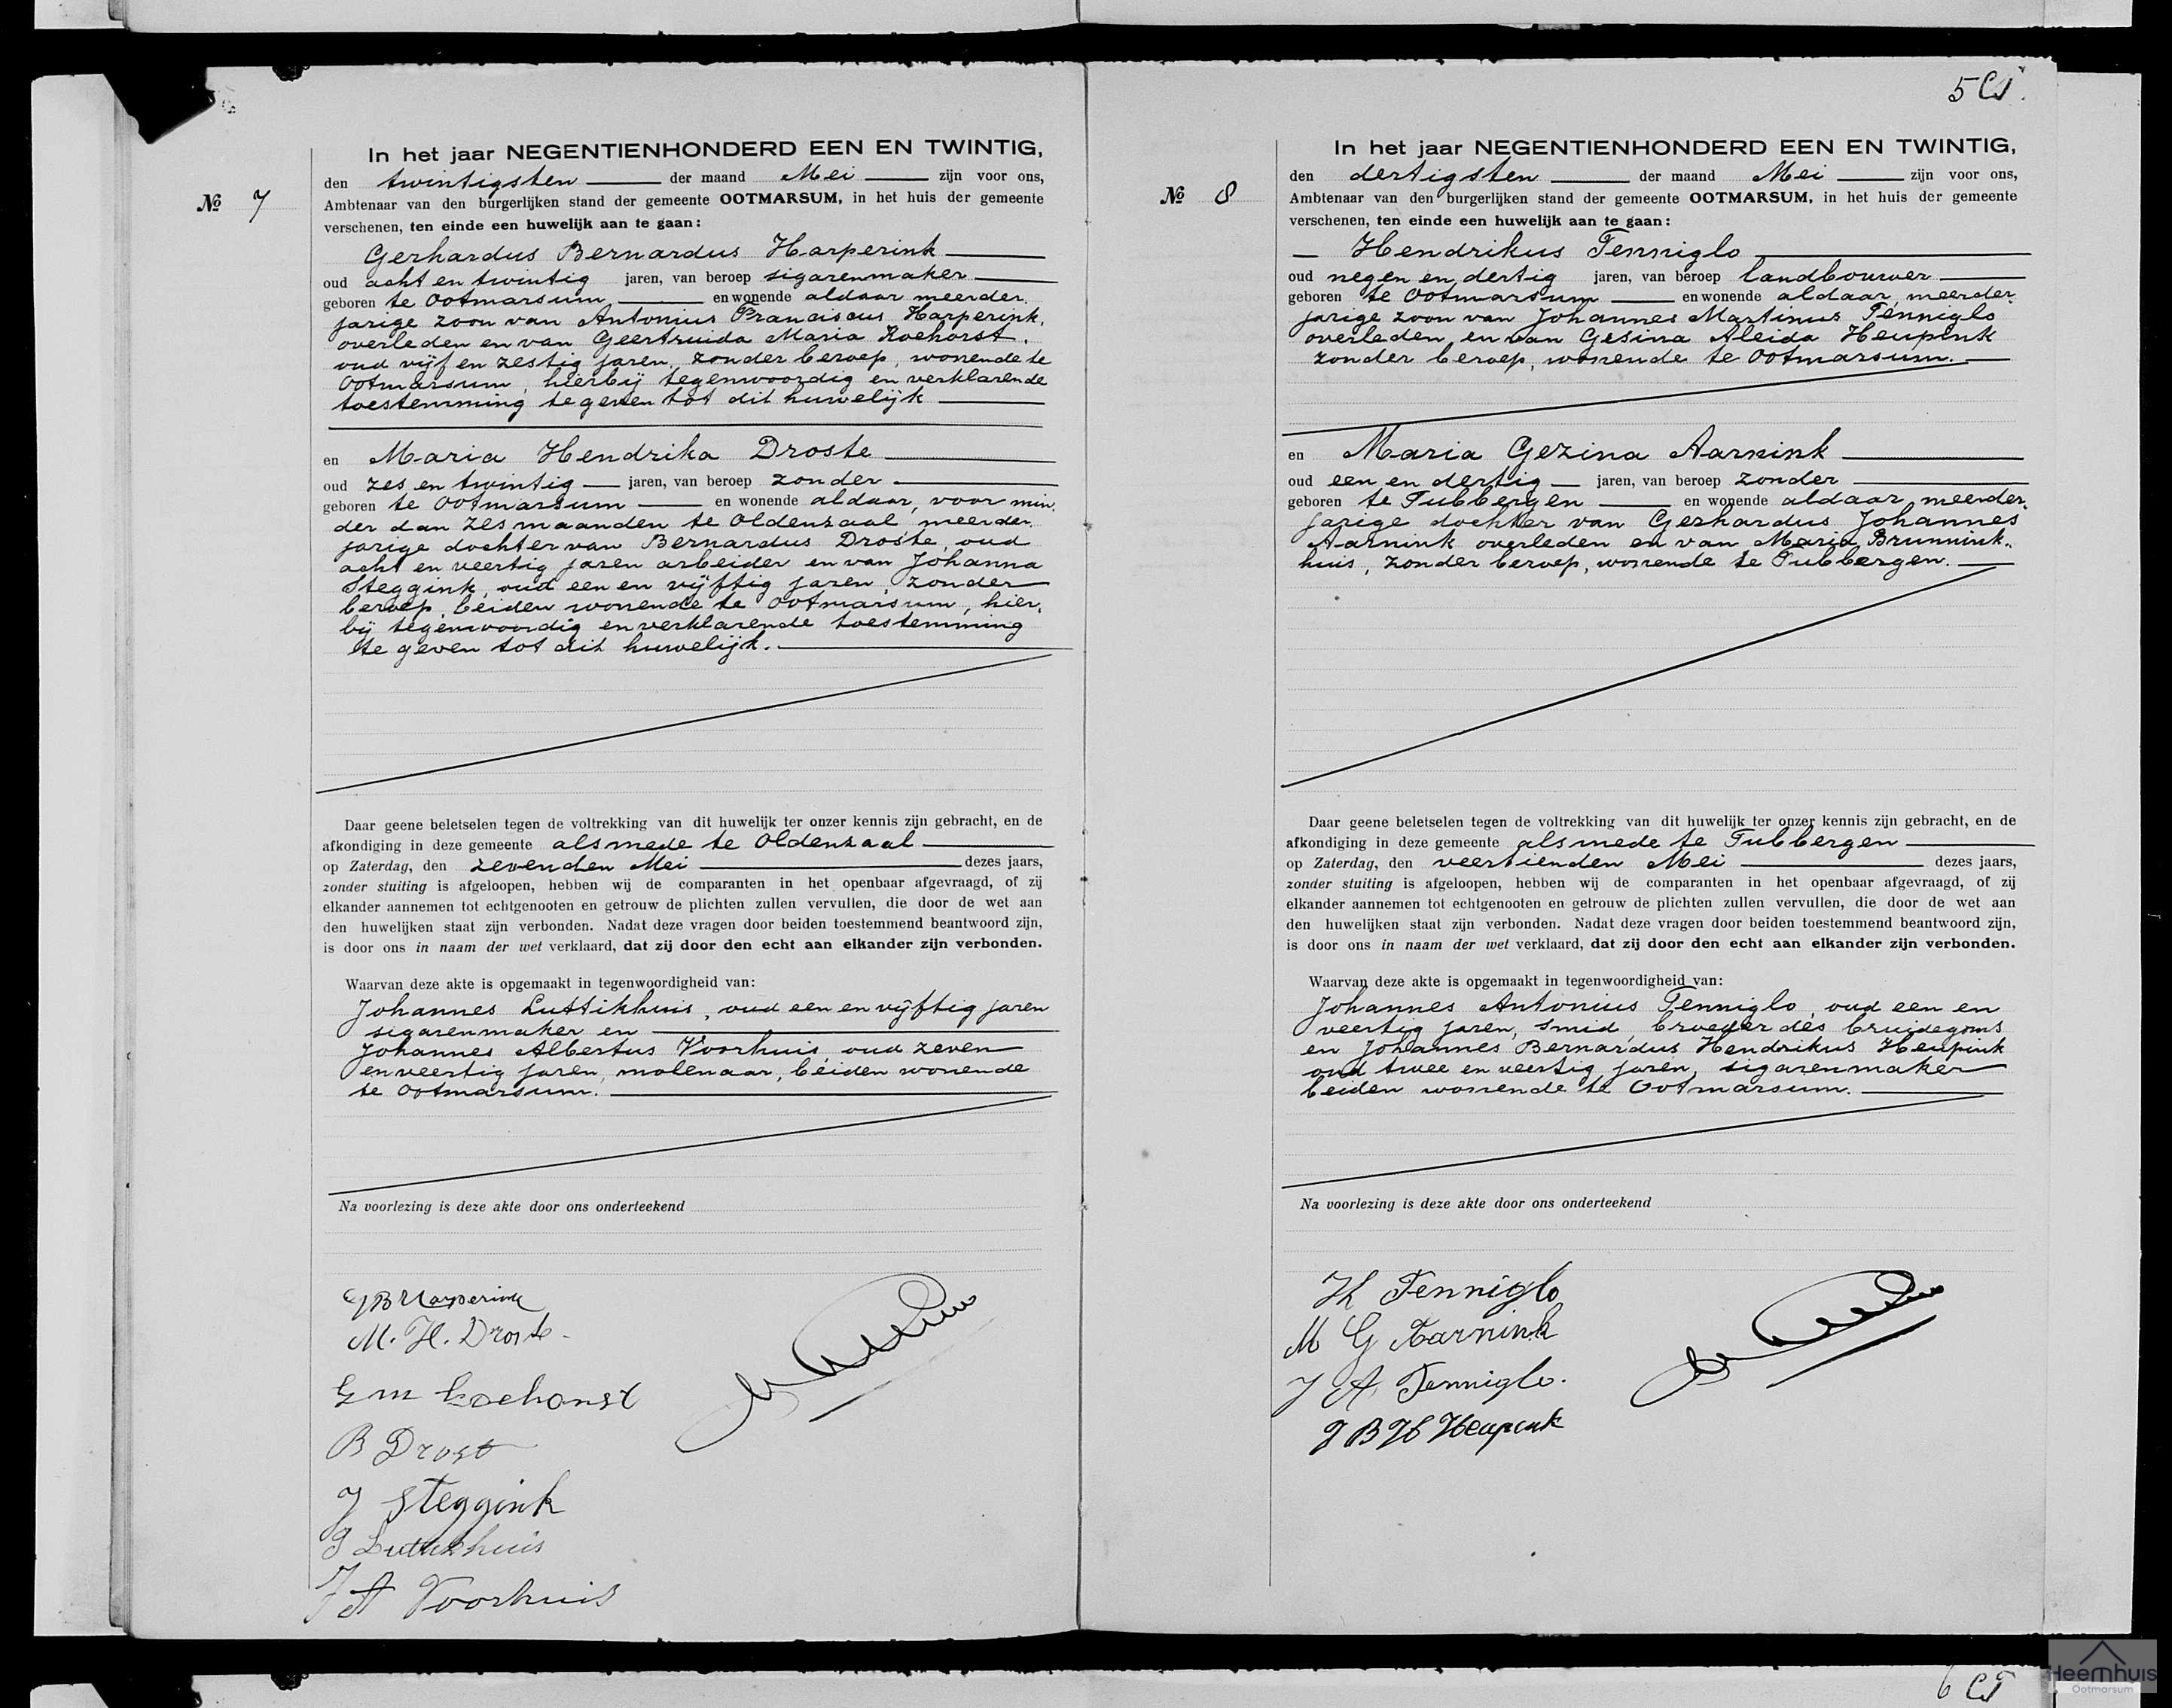 In het jaar NEGENTIENHONDERD EEN EN TWINTIG,
den twintigsten der maand Mei zijn voor ons,
Nº 7
Ambtenaar van den burgerlijken stand der gemeente OOTMARSUM, in het huis der gemeente
verschenen, ten einde een huwelijk aan te gaan:
Gerhardus Bernardus Harperink
oud acht en twintig jaren, van beroep sigarenmaker
geboren te Ootmarsum en wonende aldaar meerder
jarige zoon van Antonius Franciscus Harperink,
overleden en van Geertruida Maria Koehorst,
oud vijf en zestig jaren, zonder beroep, wonende te
Ootmarsum, hierbij tegenwoordig en verklarende
toestemming te geven tot dit huwelijk
en Maria Hendrika Droste
oud zes en twintig jaren, van beroep zonder
geboren te Ootmarsum en wonende aldaar, voor min
der dan zes maanden te Oldenzaal meerder
jarige dochter van Bernardus Droste, oud
acht en veertig jaren arbeider en van Johanna
Steggink, oud een en vijftig jaren, zonder
beroep, beiden wonende te Ootmarsum, hier,
bij tegenwoordig en verklarende toestemming
te geven tot dit huwelijk.
Daar geene beletselen tegen de voltrekking van dit huwelijk ter onzer kennis zijn gebracht, en de
afkondiging in deze gemeente alsmede te Oldenzaal
op Zaterdag, den zevenden Mei dezes jaars,
zonder stuiting is afgeloopen, hebben wij de comparanten in het openbaar afgevraagd, of zij
elkander aannemen tot echtgenooten en getrouw de plichten zullen vervullen, die door de wet aan
den huwelijken staat zijn verbonden. Nadat deze vragen door beiden toestemmend beantwoord zijn,
is door ons in naam der wet verklaard, dat zij door den echt aan elkander zijn verbonden.
Waarvan deze akte is opgemaakt in tegenwoordigheid van:
Johannes Luttikhuis, oud een en vijftig jaren
sigarenmaker en
Johannes Albertus Voorhuis, oud zeven
en veertig jaren, molenaar, beiden wonende
te Ootmarsum.
Na voorlezing is deze akte door ons onderteekend
GB Harperink
M. H. Droste
G M Koehorst
B Drost
J Steggink
J Luttikhuis
J A Voorhuis
5
In het jaar NEGENTIENHONDERD EEN EN TWINTIG,
den dertigsten der maand Mei zijn voor ons,
Nº 8
Ambtenaar van den burgerlijken stand der gemeente OOTMARSUM, in het huis der gemeente
verschenen, ten einde een huwelijk aan te gaan:
Hendrikus Tenniglo
oud negen en dertig jaren, van beroep landbouwer
geboren te Ootmarsum en wonende aldaar, meerder
jarige zoon van Johannes Martinus Tenniglo
overleden, en van Gesina Aleida Heupink
zonder beroep, wonende te Ootmarsum.
en Maria Gezina Aarnink
oud een en dertig jaren, van beroep zonder
geboren te Tubbergen en wonende aldaar, meerder,
jarige dochter van Gerhardus Johannes
Aarnink overleden en van Maria Brunnink,
huis, zonder beroep, wonende te Tubbergen.
Daar geene beletselen tegen de voltrekking van dit huwelijk ter onzer kennis zijn gebracht, en de
afkondiging in deze gemeente alsmede te Tubbergen
op Zaterdag, den veertienden Mei dezes jaars,
zonder stuiting is afgeloopen, hebben wij de comparanten in het openbaar afgevraagd, of zij
elkander aannemen tot echtgenooten en getrouw de plichten zullen vervullen, die door de wet aan
den huwelijken staat zijn verbonden. Nadat deze vragen door beiden toestemmend beantwoord zijn,
is door ons in naam der wet verklaard, dat zij door den echt aan elkander zijn verbonden.
Waarvan deze akte is opgemaakt in tegenwoordigheid van:
Johannes Antonius Tenniglo, oud een en
veertig jaren, smid, broeder des bruidegoms
en Johannes Bernardus Hendrikus Heupink
oud twee en veertig jaren, sigarenmaker
beiden wonende te Ootmarsum.
Na voorlezing is deze akte door ons onderteekend
H Tenniglo
M G Aarnink
J A Tenniglo.
J B H Heupink
6
Heemhuis
Ootmarsum